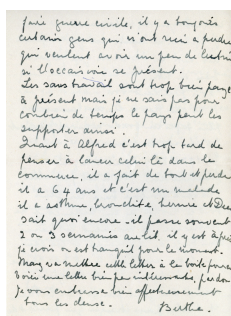 faire guerre civile, il y a toujours
certains gens qui n'ont rien a perdre
qui veulent avoir un peu de butin
si l'occasion se présent.
Les sans travail sont trop bien payé
à présent mais je ne sais pas pour
combien de temps le pays peut les
supporter ainsi.
Quant à Alfred c'est trop tard de
penser à lancer celui là dans le
commerce, il a fait de tout et perdu
il a 64 ans et c'est un malade
il a asthme, bronchite, hernie et Dieu
sait quoi encore. il passe souvent
2 ou 3 semaines au lit, il y est à présent
je crois on est tranquil pour le moment.
May va mettre cette lettre à la boite pour
Voici une lettre bien peu intéressante, pardon
Je vous embrasse bien affectueusement
tous les deux.
Berthe.